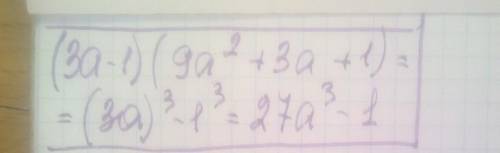 (3a-1)(9a² +3a +1) =
= (3a)³ - 1³ = 27a³ - 1